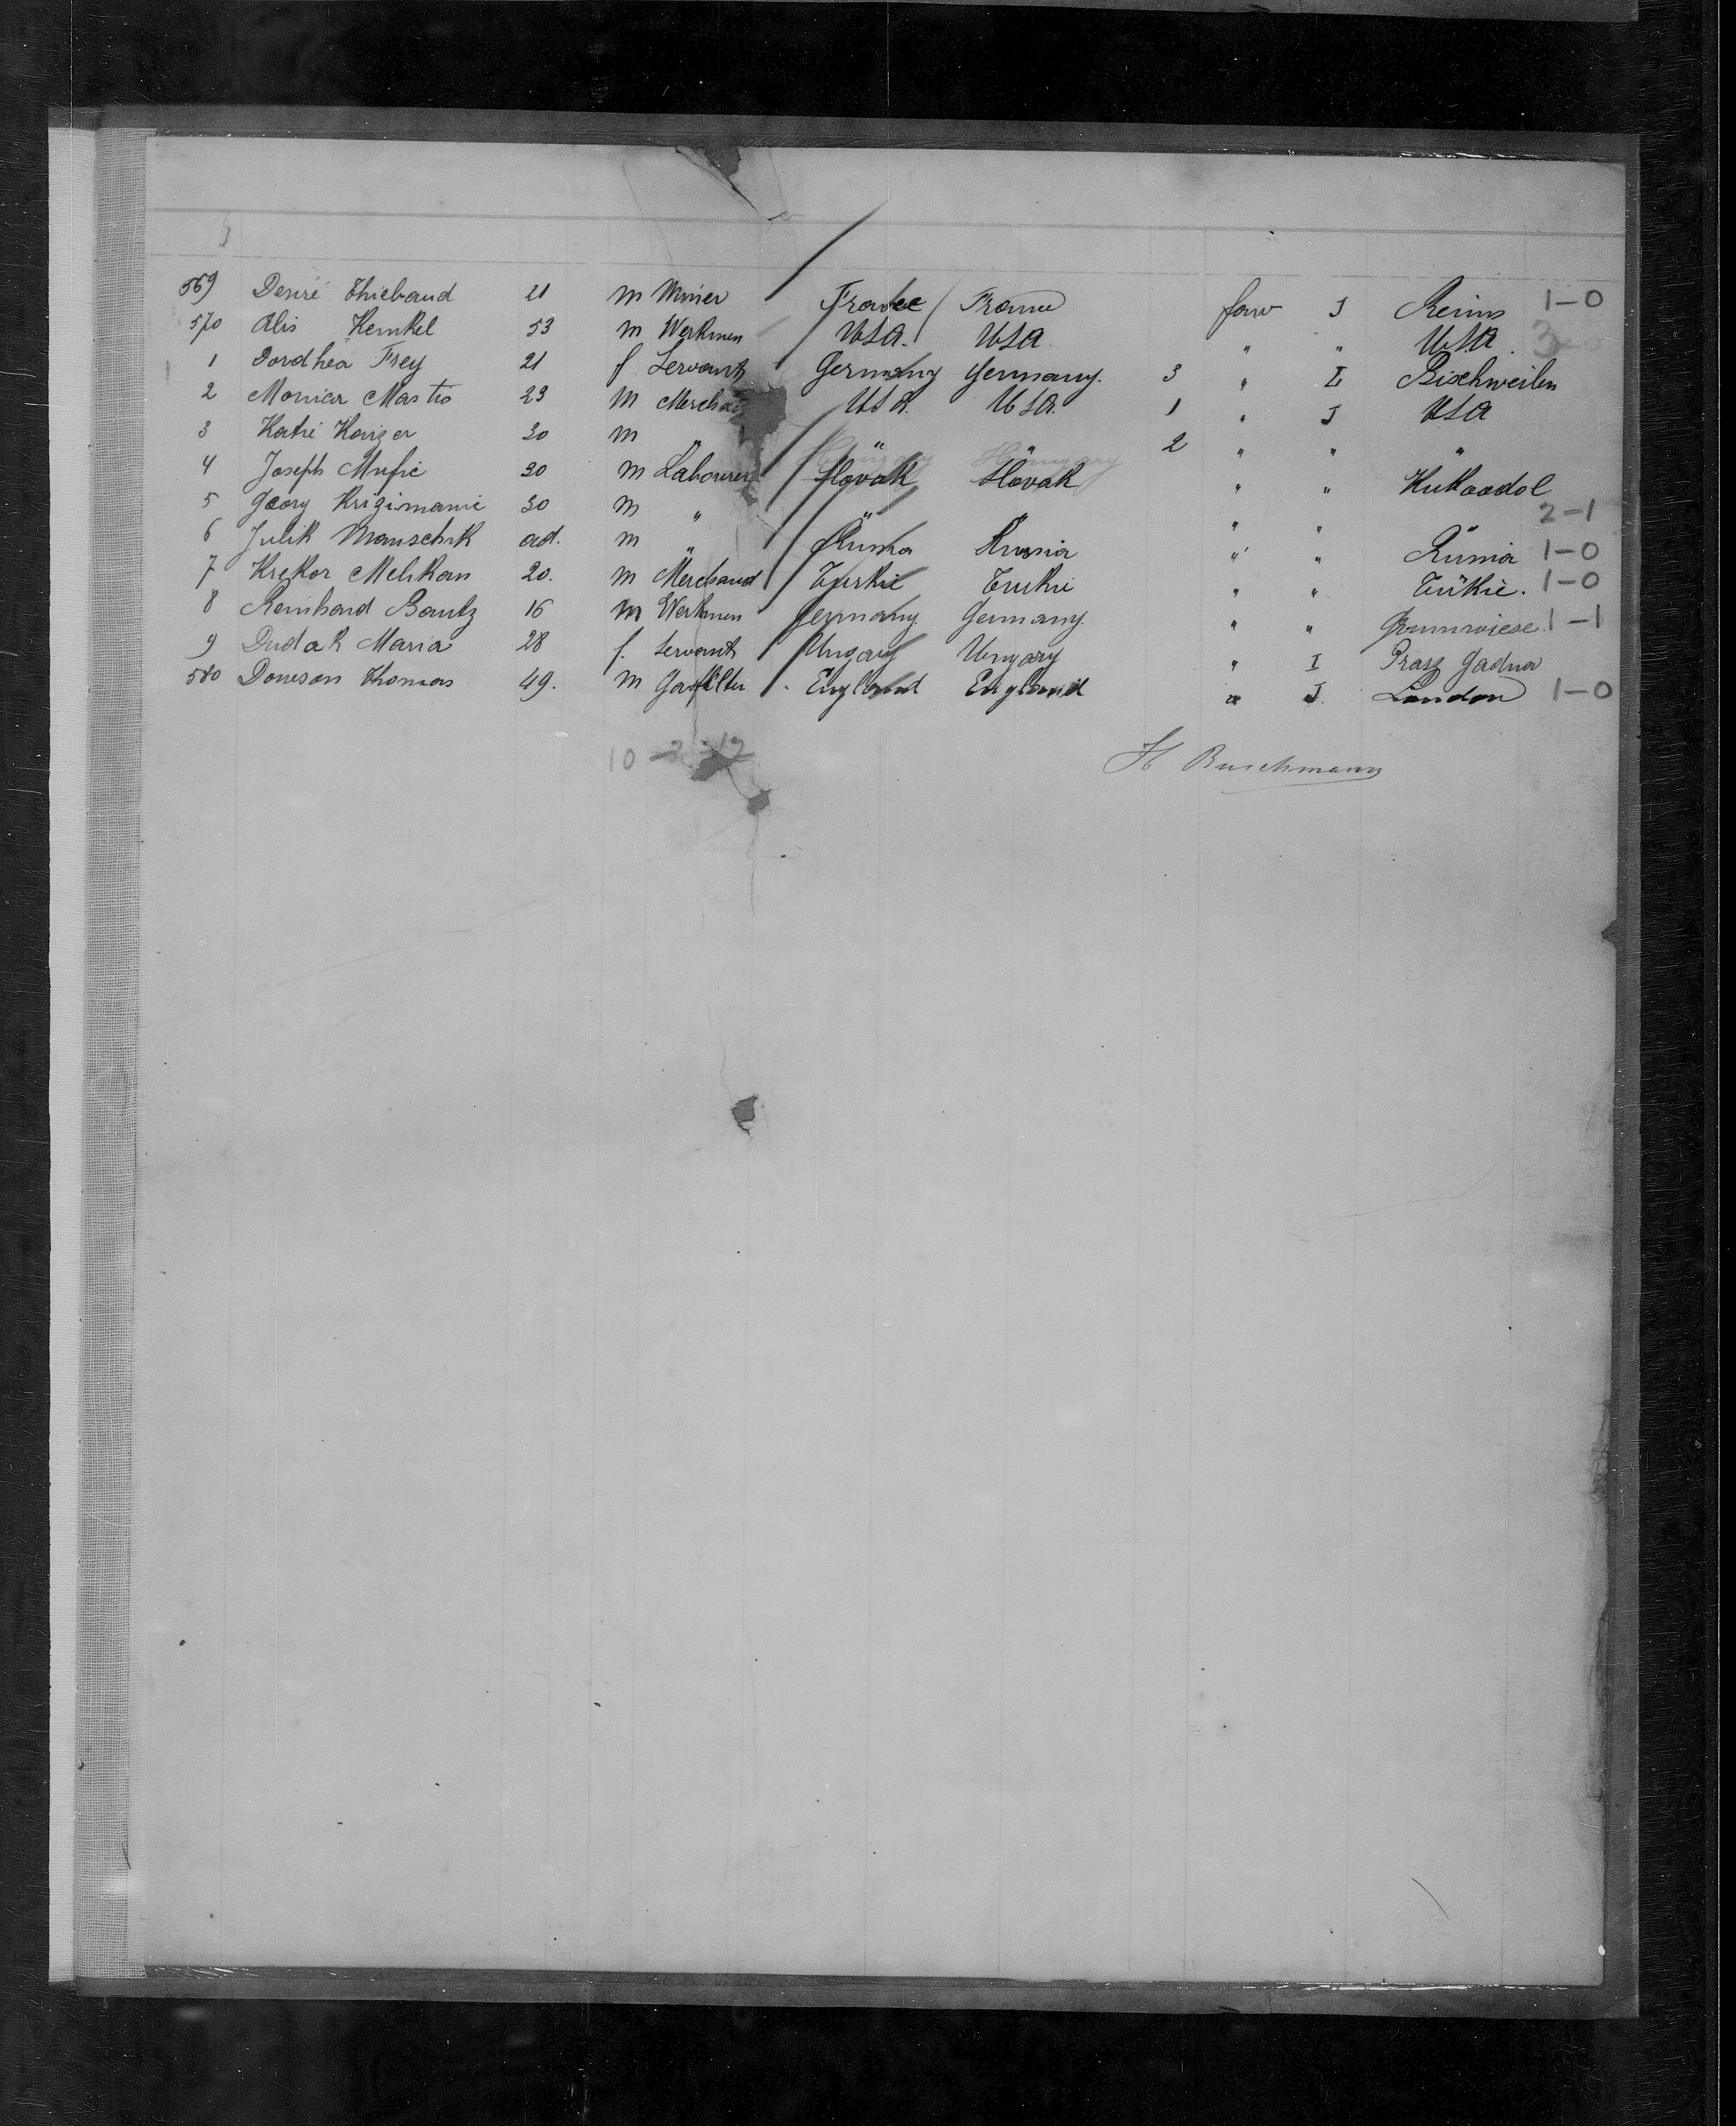 569 Desiré Thiebaud 21 m Minier France France forw J Reims 1-0
570 Alis Henkel 53 m Werkmen USA. USA. " " USA. 3
1 Dordhea Frey 21 f Servant Germany Germany. 3 " I Bischweilen
2 Monica Mastio 23 m Merchand USA. USA. 1 " J USA
3 Katie Kaizer 30 m " " " 2 " " "
Hungary Hungary
4 Joseph Mufic 20 m Labourer Slovak Slovak " " Kukoadol
5 Georg Krizimanic 30 m " " " " " " 2-1
6 Julik Manschik ad. m " Russia Russia " " Russia 1-0
7 Krekor Melikan 20. m Merchand Turkie Turkie " " Türkie. 1-0
8 Reinhard Bantz 16 m Werkmen Germany. Germany. " " Grunwiese. 1-1
9 Dudak Maria 28 f. Servant Ungary Ungary " I Prasz Gadna
580 Dowson Thomas 49. m England England " J. London 1-0
10-2-12
H Buschmann